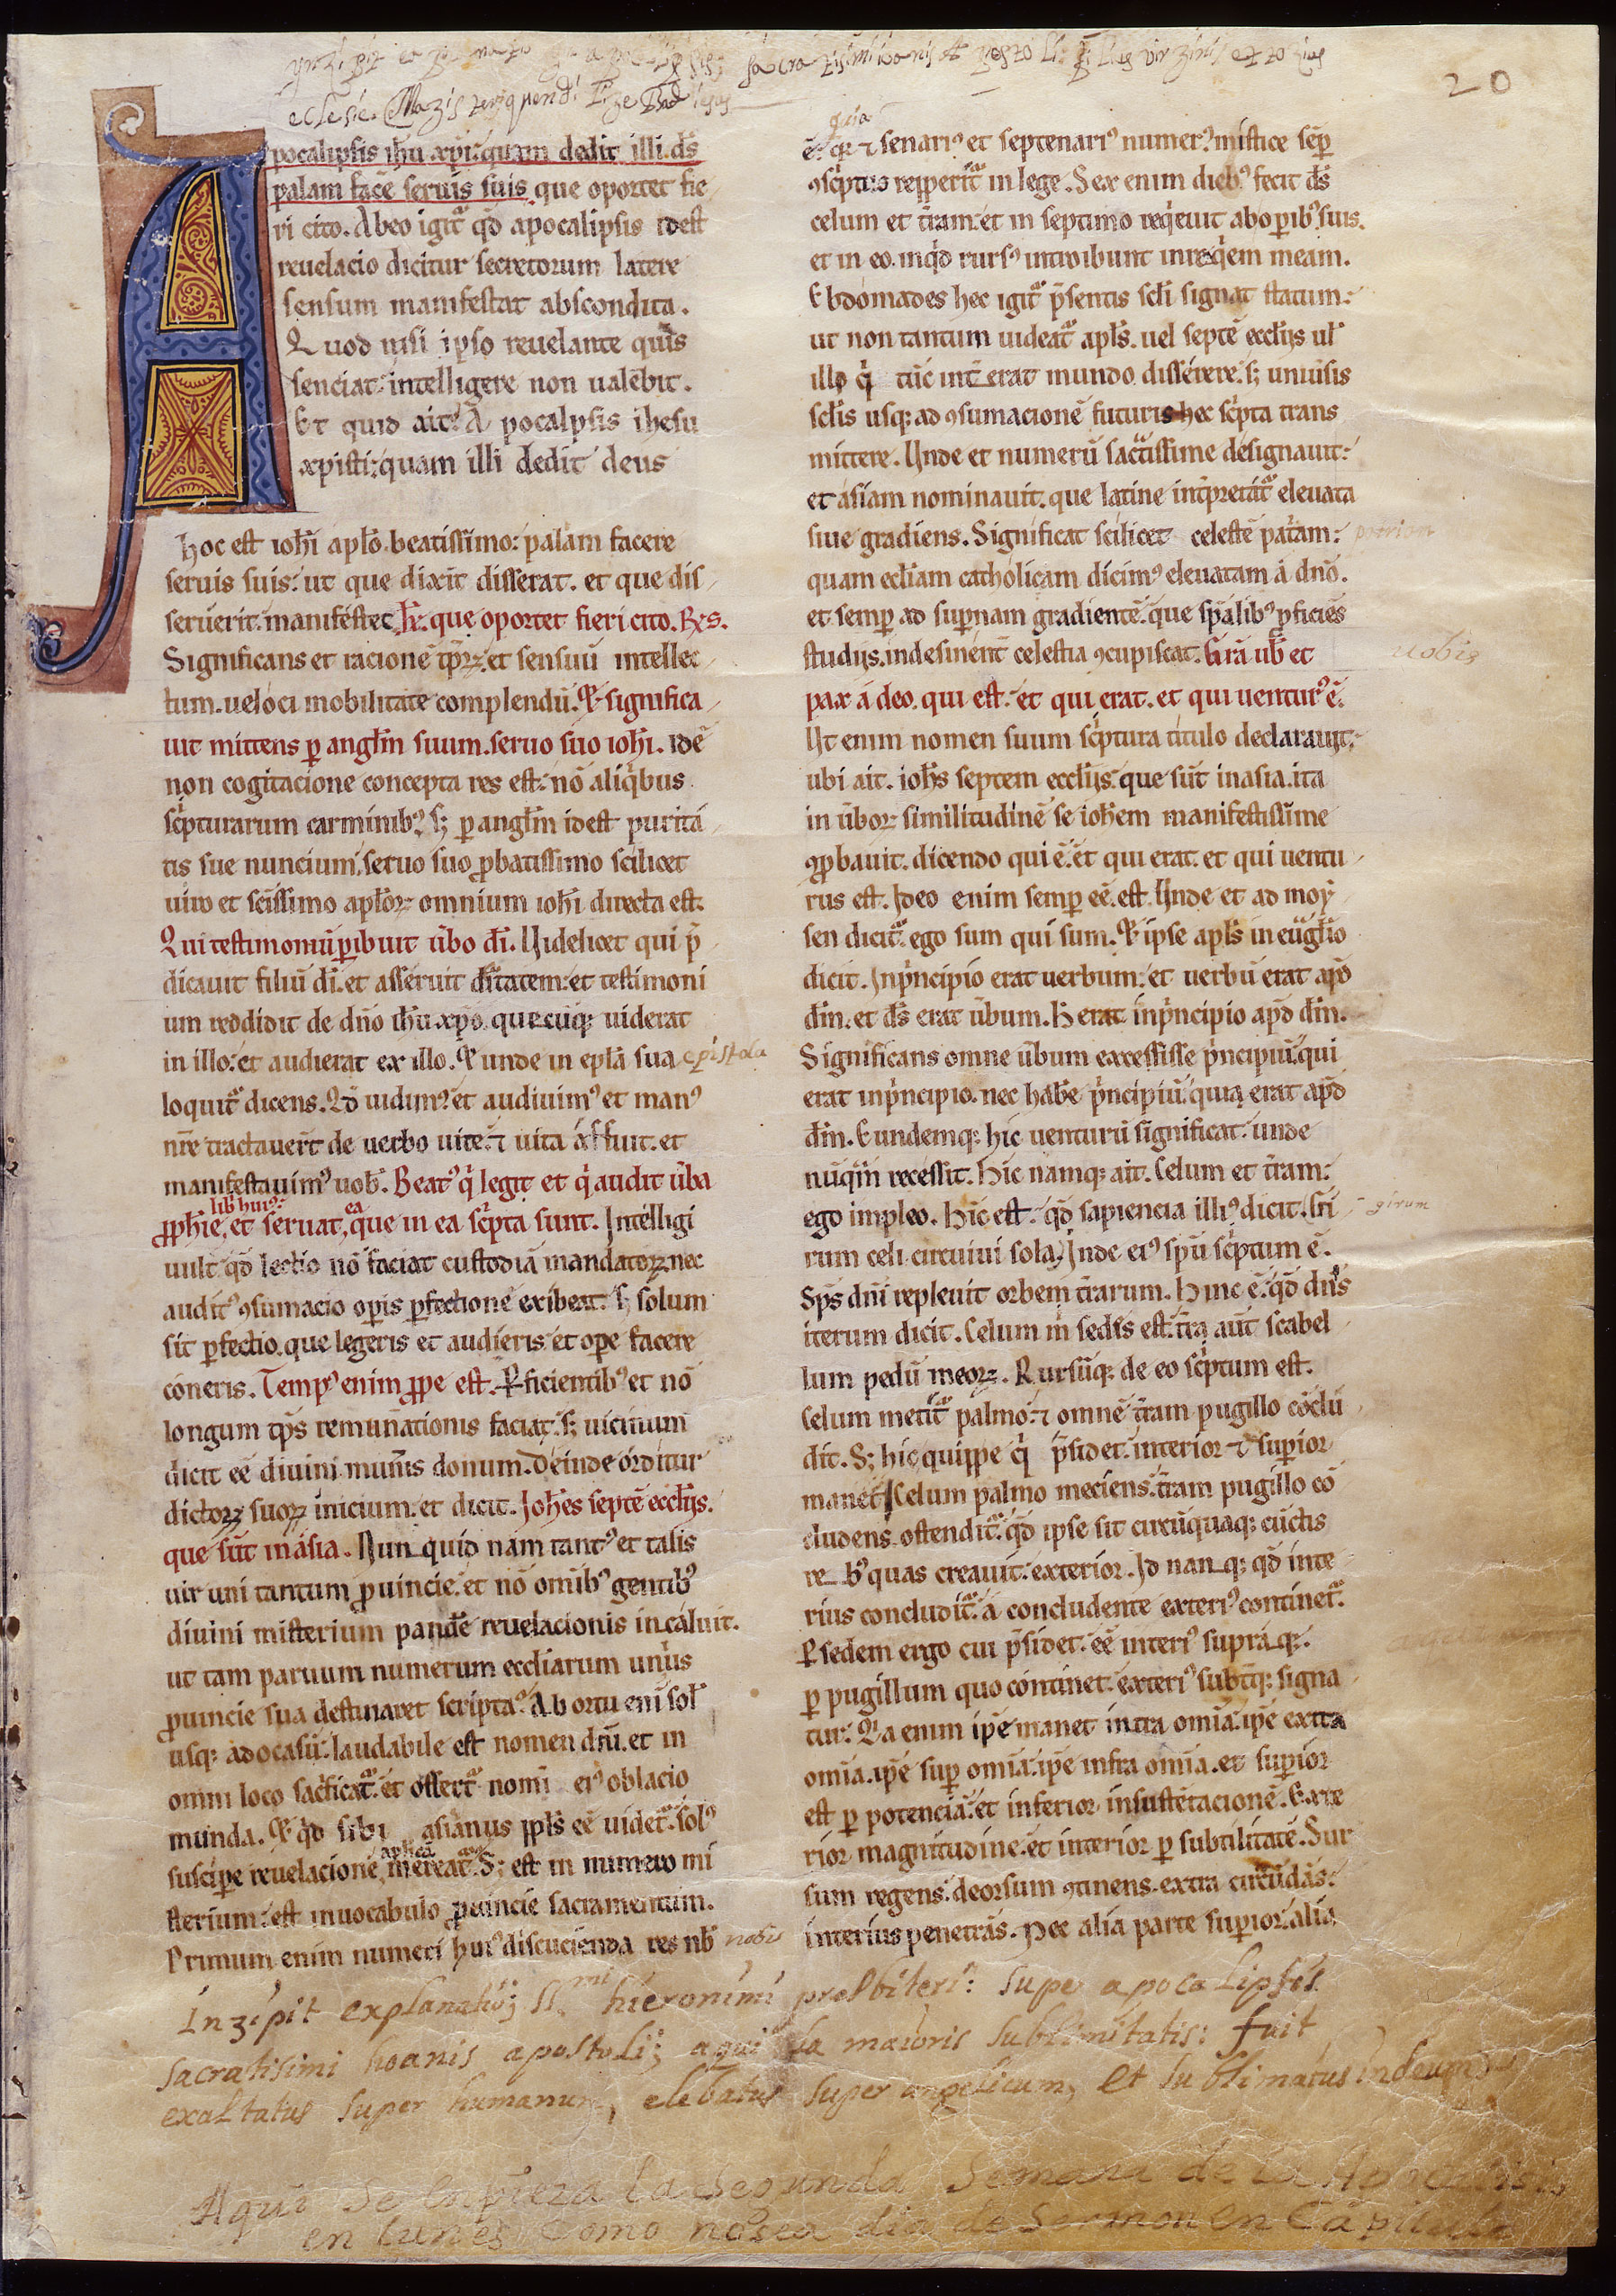 20
eclesie.
pocalipsis ih̄u xp̄i: quam dedit illi d̄s
palam fac̄e seruis suis. que oportet fie
ri cito. Ab eo igit̄ q̄d apocalipsis idest
reuelacio dicitur secretorum latere
sensum manifestat abscondita.
Quod nisi ipso reuelante quis
senciat: intelligere non ualebit.
Et quid ait? A pocalpsis ihesu
xpisti: quam illi dedit deus
hoc est ioh̄i apl̄o beatissimo: palam facere
seruis suis: ut que dixit disserat. et que dis
seruerit manifestet. que oportet fieri cito.
Significans et racione et sensuū intellec
tum. ueloci mobilitate complendū. Et significa
uit mittens p angl̄m suum. seruo suo ioh̄i. idē
non cogitacione concepta res est: nō aliq̄bus
sc̄pturarum carminib; s; p angl̄m idest purita
tis sue nuncium. seruo suo p̄batissimo scilicet
uiro et sc̄issimo apl̄oꝝ omnium ioh̄i directa est.
Qui testimoniū p̄ibuit ūbo d̄i. Uidelicet qui p̄
dicauit filiū d̄i. et asseruit et testimoni
um reddidit de dn̄o ih̄u xp̄o quecūq; uiderat
in illo: et audierat ex illo. Et unde in epl̄a sua epistola
loquit̄ dicens. Q̄d uidim᾽ et audiuim᾽ et man᾽
nr̄e tractauer̄t de uerbo uite: ⁊ uita affuit. et
manifestauim᾽ uob̄. Beat᾽ q̄ legit et q̄ audit ūba
lib̄ hui᾽ ea
p̄ph̄ie, et seruat, que in ea sc̄pta sunt. Intelligi
uult q̄d lectio nō faciat custodiā mandatoꝝ. nec
audit᾽ ꝯsumacio operis p̄fectionē exibeat. s; solum
sit p̄fectio. que legeris et audieris et ope facere
coneris. Temp᾽ enim p̄pe est. P̄ficientib᾽ et nō
longum tp̄s remun̄ationis faciat. s; uicinum
dicit eē diuini mun̄is donum. Deinde orditur
dictoꝝ suoꝝ inicium. et dicit. Joh̄es septē eccl̄ijs.
que sūt in asia. Nun quid nam tant᾽ et talis
uir uni tantum p̄uincie. et nō om̄ib᾽ gentib᾽
diuini misterium pand̄e reuelacionis incaluit.
ut tam paruum numerum eccl̄iarum uni᾽s
p̄uincie sua destinaret scripta? Ab ortu eni sol̄
usq; ad ocasū: laudabile est nomen dn̄i. et in
omni loco sac̄ficat̄. et offert̄ nom̄i ei᾽ oblacio
munda. Et q̄d sibi asianus ppl̄s eē uidet̄. sol᾽
suscipe reuelacionē mereat̄. S; est in numero mi
sterium: est in uocabulo p̄uincie sacramentum.
Primum enim numeri hui᾽ discucienda res nb̄ nobis
quia
ē. q; ⁊ senari᾽ et septenari᾽ numer᾽ mistice semp̄
ꝯsc̄ptus repperit̄ in lege. Sex enim dieb᾽ fecit d̄s
celum et t̄ram: et in septimo req̄euit ab op̄ib᾽ suis.
et in eo. inq̄d rurs᾽ introibunt in req̄em meam.
Ebdomades hec igit̄ p̄sentis sc̄li signat statum:
ut non tantum uideat̄ apl̄s. uel septē eccl̄ijs ul̄
illo q̄ tūc int̄erat mundo disserere: s; uniūsis
sc̄lis usq; ad ꝯsumacionē futuris hec sc̄pta trans
mittere. Unde et numerū sac̄tissime designauit:
et asiam nominauit. que latine int̄pretat̄ eleuata
siue gradiens. Significat scilicet celestē pat̄am: patriam
quam eccl̄iam catholicam dicim᾽ eleuatam á dn̄o.
et semp̄ ad sup̄nam gradientē. que sp̄alib᾽ p̄ficiēs
studijs. indesinent̄ celestia ꝯcupiscat. Gr̄a ūb et uobis
pax á deo. qui est: et qui erat. et qui uentur᾽ ē.
Ut enim nomen suum sc̄ptura titulo declarauit:
ubi ait. ioh̄s septem eccl̄ijs que sūt in asia. ita
in ūboꝝ similitudinē se ioh̄em manifestissime
ꝯp̄bauit. dicendo qui ē. et qui erat. et qui uentu
rus est. Ideo enim semp̄ eē. est. Unde et ad moy
sen dicit̄. ego sum qui sum. Et ipse apl̄s in eūgl̄io
dicit. In p̄ncipio erat uerbum: et uerbū erat ap̄d
d̄m. et d̄s erat ūbum. H erat in p̄ncipio ap̄d d̄m.
Significans omne ūbum excessisse p̄ncipiū: qui
erat in p̄ncipio. nec hab̄e p̄ncipiū: quia erat ap̄d
d̄m. Eundemq; hic uenturū significat: unde
nūq̄m recessit. Hic namq; ait. Celum et t̄ram:
ego impleo. Hic est. q̄d sapiencia illi᾽ dicit. Gi girum
rum celi circuiui sola. Inde ei᾽ sp̄u sc̄ptum ē.
Sp̄s dn̄i repleuit orbem t̄rarum. Hinc ē. q̄d dn̄s
iterum dicit. Celum m̄ sedis est: t̄ra aūt scabel
lum pedū meoꝝ. Rursūq; de eo sc̄ptum est.
Celum metit̄ palmo: ⁊ omnē t̄ram pugillo cōclu
dit. S; hic quippe q̄ p̄sidet: interior ⁊ sup̄ior
manet. Celum palmo meciens: t̄ram pugillo cō
cludens ostendit̄. q̄d ipse sit circūquaq; cūctis
re b᾽ quas creauit. exterior. Id nanq; q̄d inte
rius concludit̄: a concludente exteri᾽ continet̄.
P sedem ergo cui p̄sidet. eē interi᾽ supraq;.
p pugillum quo continet: exteri᾽ subt̄q; signa
tur. Q̄a enim ip̄e manet intra omīa. ip̄e extra
omīa. ip̄e sup̄ omīa. ip̄e infra omīa. et sup̄ior
est p potenciā: et inferior insustētacionē. Exte
rior magnitudine. et interior p subtilitatē. Sur
sum regens. deorsum ꝯtinens. extra circūdās:
interius penetrās. Nec alia parte sup̄ior. alia
Inzipit explanatio; hieronimi presbiteri: supe apocalipsis
sacratisimi ioanis apostoli; aquila maioris sublimitatis: fuit
exaltatus super humanum, elebatus super angelicum, et sublimatus in deum
Aqui se enpieza la segunda semana de la Apocalisis
en lunes como no sea dia de sermon en Capitulo